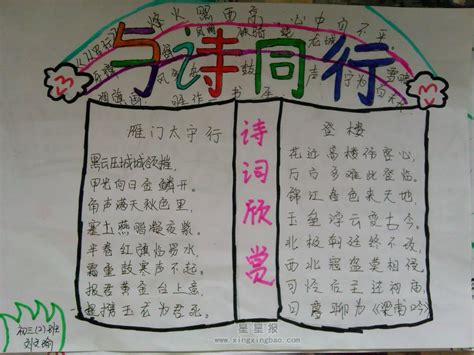 烽火照西京，心中自不平。
龙城
胜作一书生
与诗同行
雁门太守行
黑云压城城欲摧，
甲光向日金鳞开。
角声满天秋色里，
塞土燕脂凝夜紫。
半卷红旗临易水，
霜重鼓寒声不起。
报君黄金台上意，
提携玉龙为君死。
诗词欣赏
登楼
花近高楼伤客心，
万方多难此登临。
锦江春色来天地，
玉垒浮云变古今。
北极朝廷终不改，
西山寇盗莫相侵。
可怜后主还祠庙，
日暮聊为《梁甫吟》
初三(2)班
星星报
www.xingxingbao.com